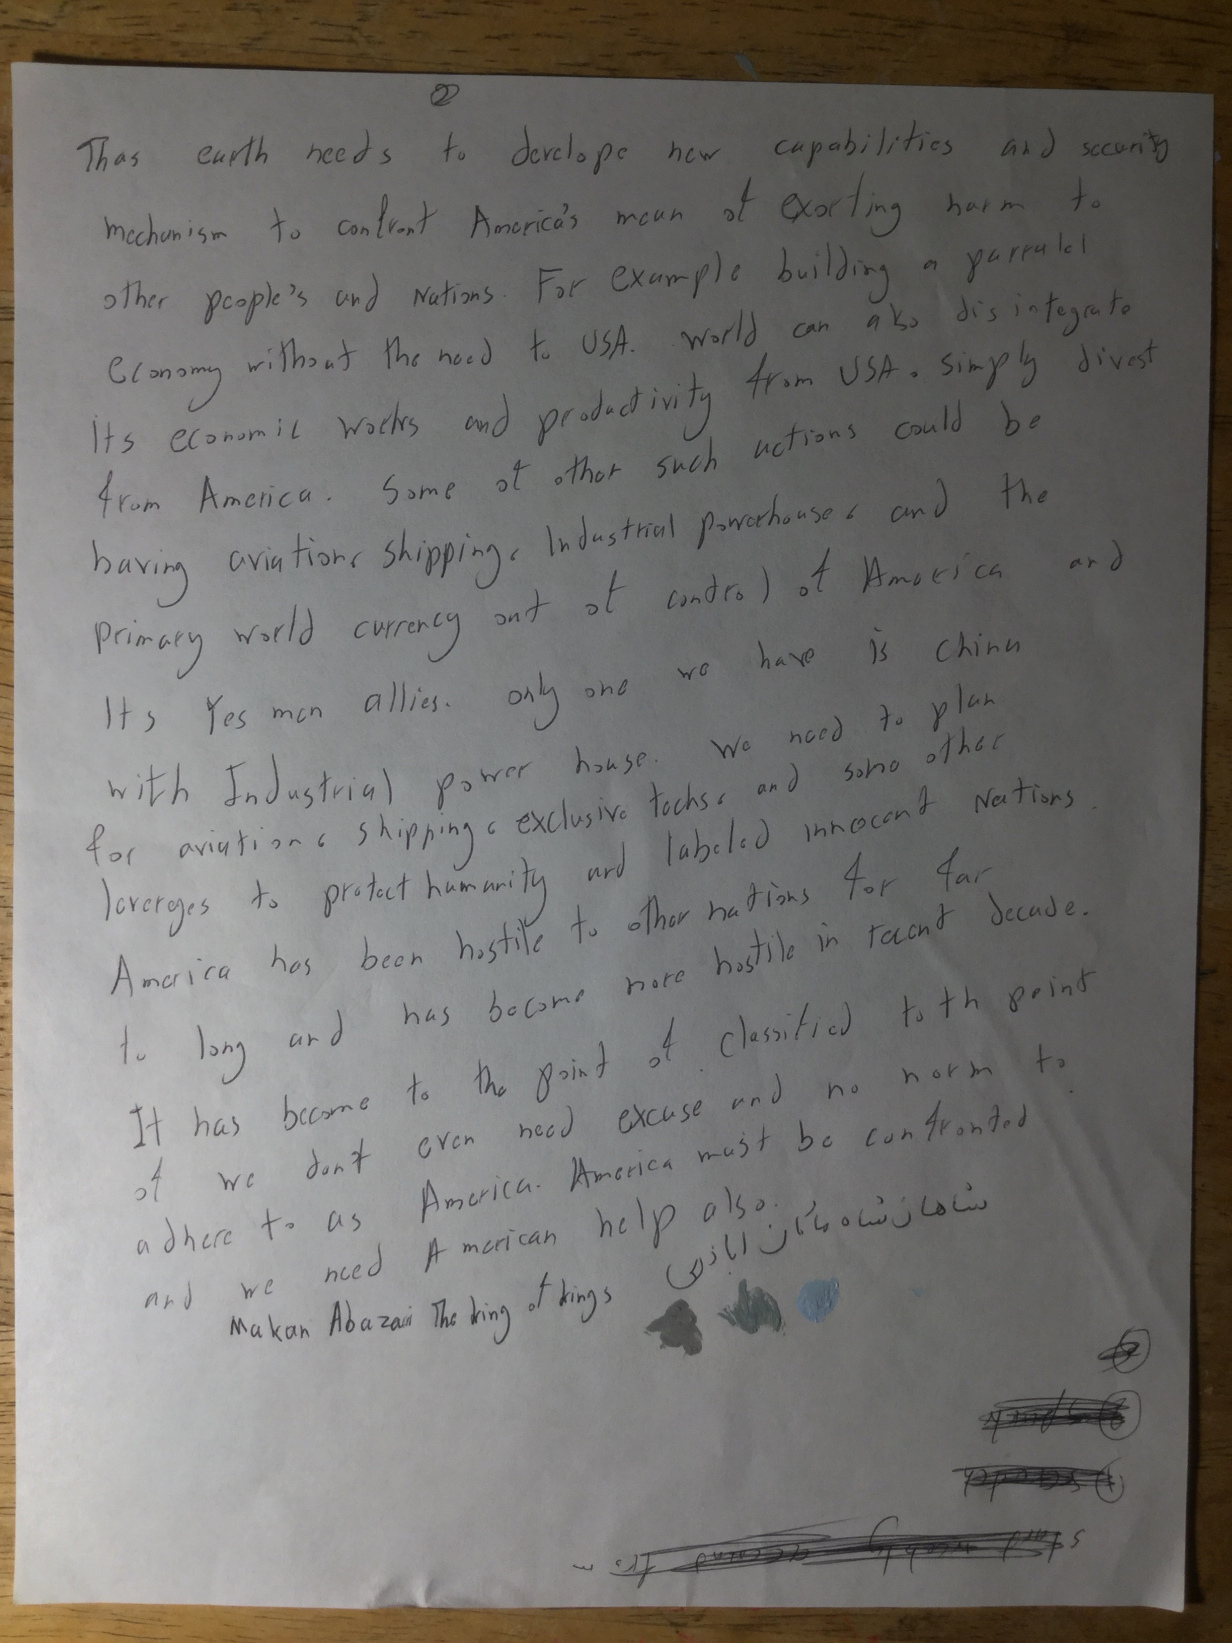 ②
Thas earth needs to develope new capabilities and security
mechanism to confront America's mean of exorting harm to
other people's and Nations. For example building a parralel
economy without the need to USA. World can also disintegrate
its economic works and productivity from USA. Simply divest
from America. Some of other such actions could be
having aviation, shipping, Industrial powerhouse, and the
primary world currency out of control of America and
Its Yes men allies. only one we have is china
with Industrial power house. We need to plan
for aviation, shipping, exclusive techs, and some other
levereges to protect humanity and labeled innocent Nations.
America has been hostile to other nations for far
to long and has become more hostile in recent decade.
It has become to the point of classified to th point
of we don't even need excuse and no norm to
adhere to as America. America must be confronted
and we need American help also.
Makan Abazari The king of kings شاهان شاه ماکان اباذری